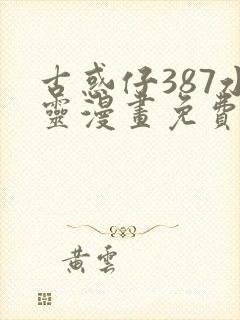 古惑仔387水
靈漫畫免費
黃雲